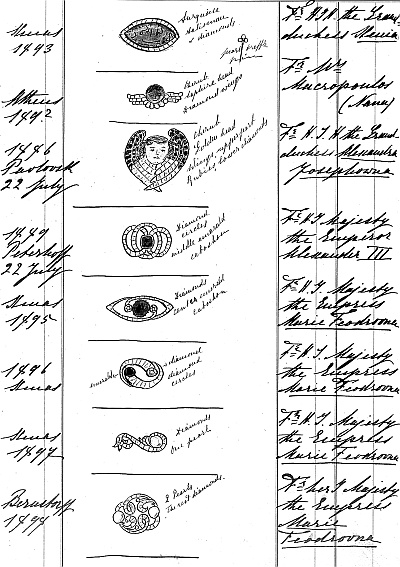 Xmas
1893
Turquoise
talisman
& diamonds
Fr. H.I.H. the Grand
duchess Xenia
Athens
1892
Cherub
sapphire head
Diamond wings
Fr. Mrs
Macropoulos
(Nana)
1886
Pavlovsk
22 July
Cherub
head
Wings upper part
Rubies, lower diamonds
Fr. H. I. H. the Grand
duchess Alexandra
Josephowna
1889
Peterhoff
22 July
Diamond
circles
middle emerald
cabochon
Fr. H. I. Majesty
the Emperor
Alexander III
Xmas
1895
Diamonds
center emerald
cabochon
Fr. H. I. Majesty
the Empress
Marie Feodrovna
1896
Xmas
emerald
diamond
diamond
circles
Fr. H. I. Majesty
the Empress
Marie Feodrovna
Xmas
1897
Diamonds
One pearl
Fr. H. I. Majesty
the Empress
Marie Feodrovna
Bernstorff
1899
2 Pearls
The rest diamonds.
Fr. her I. Majesty
the Empress
Marie
Feodrovna